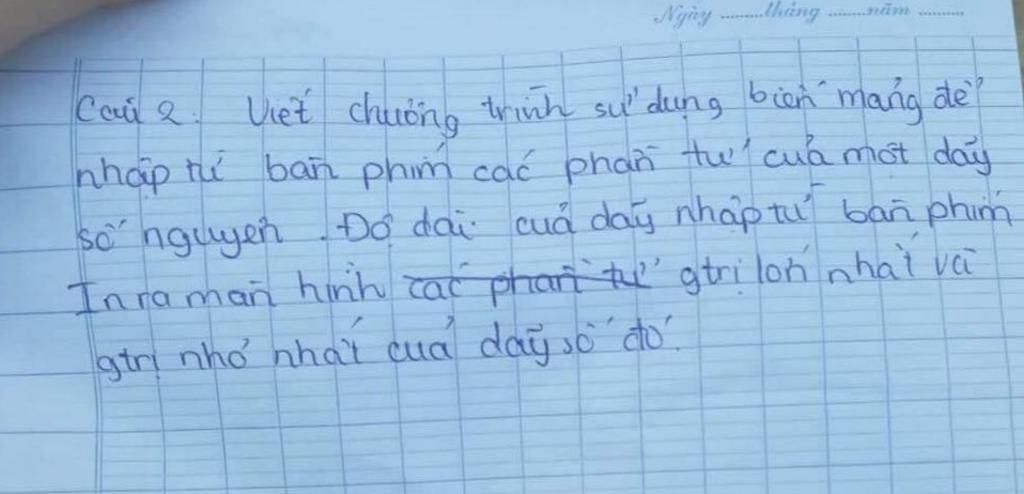 Ngày ........tháng .......năm .........
Câu 2. Viết chương trình sử dụng biến mảng để
nhập từ bàn phím các phần tử của một dãy
số nguyên. Độ dài của dãy nhập từ bàn phím
In ra màn hình các phần tử gtrị lớn nhất và
gtrị nhỏ nhất của dãy số đó.